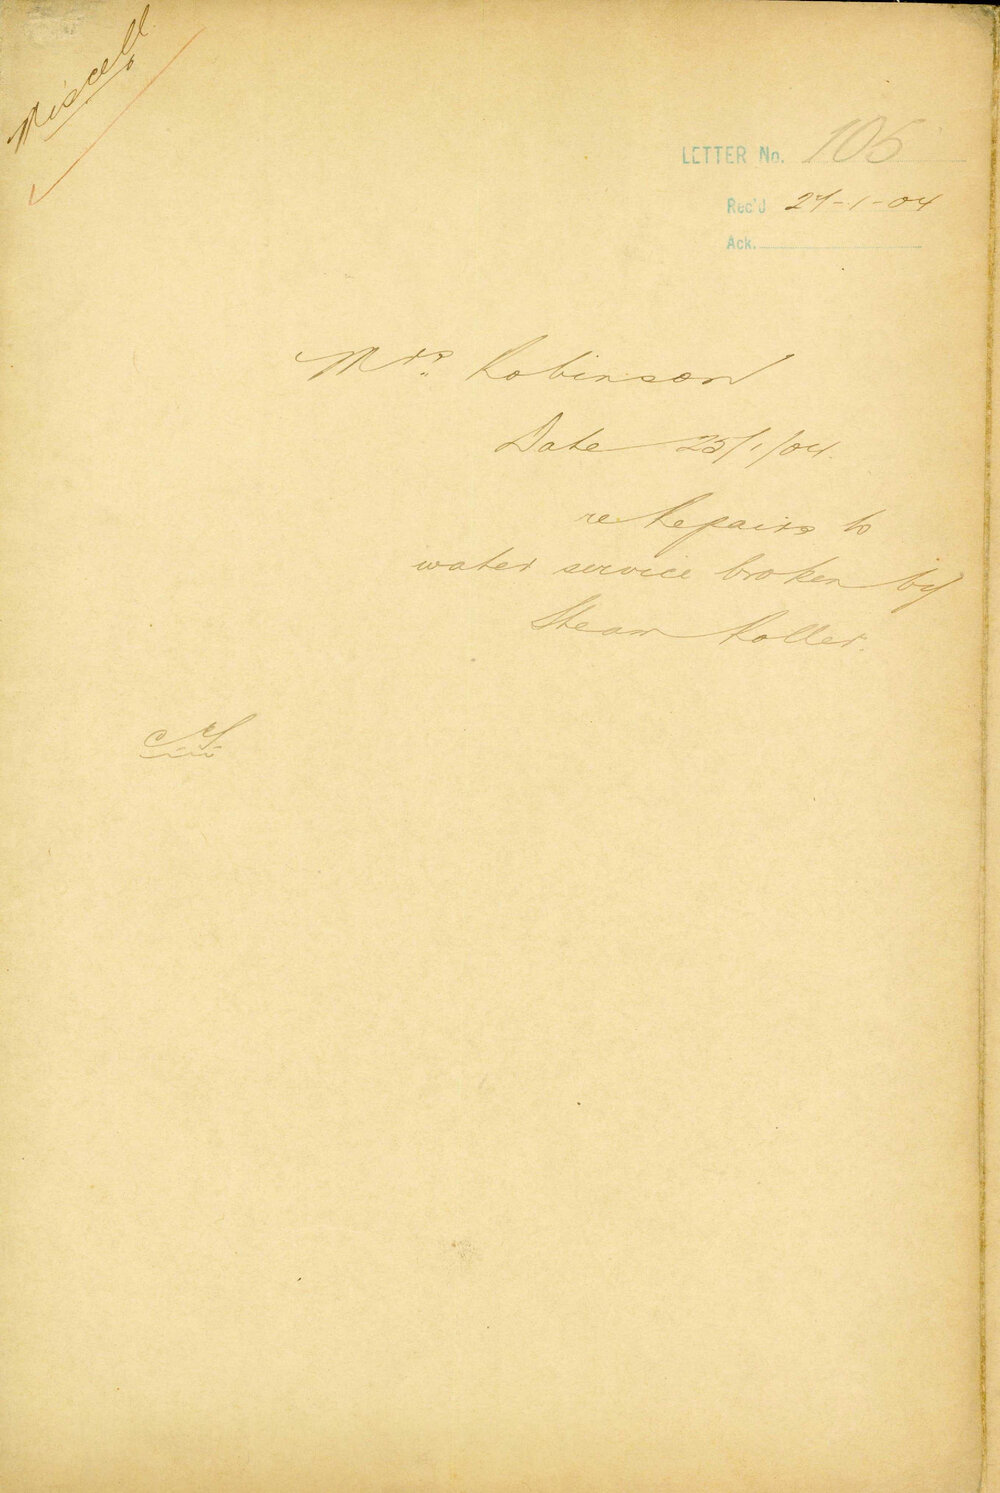 Miscell
LETTER No. 105
Rec'd 27-1-04
Ack.
Mrs. Robinson
Date 25/1/04.
re Repairs to
water service broken by
Steam Roller.